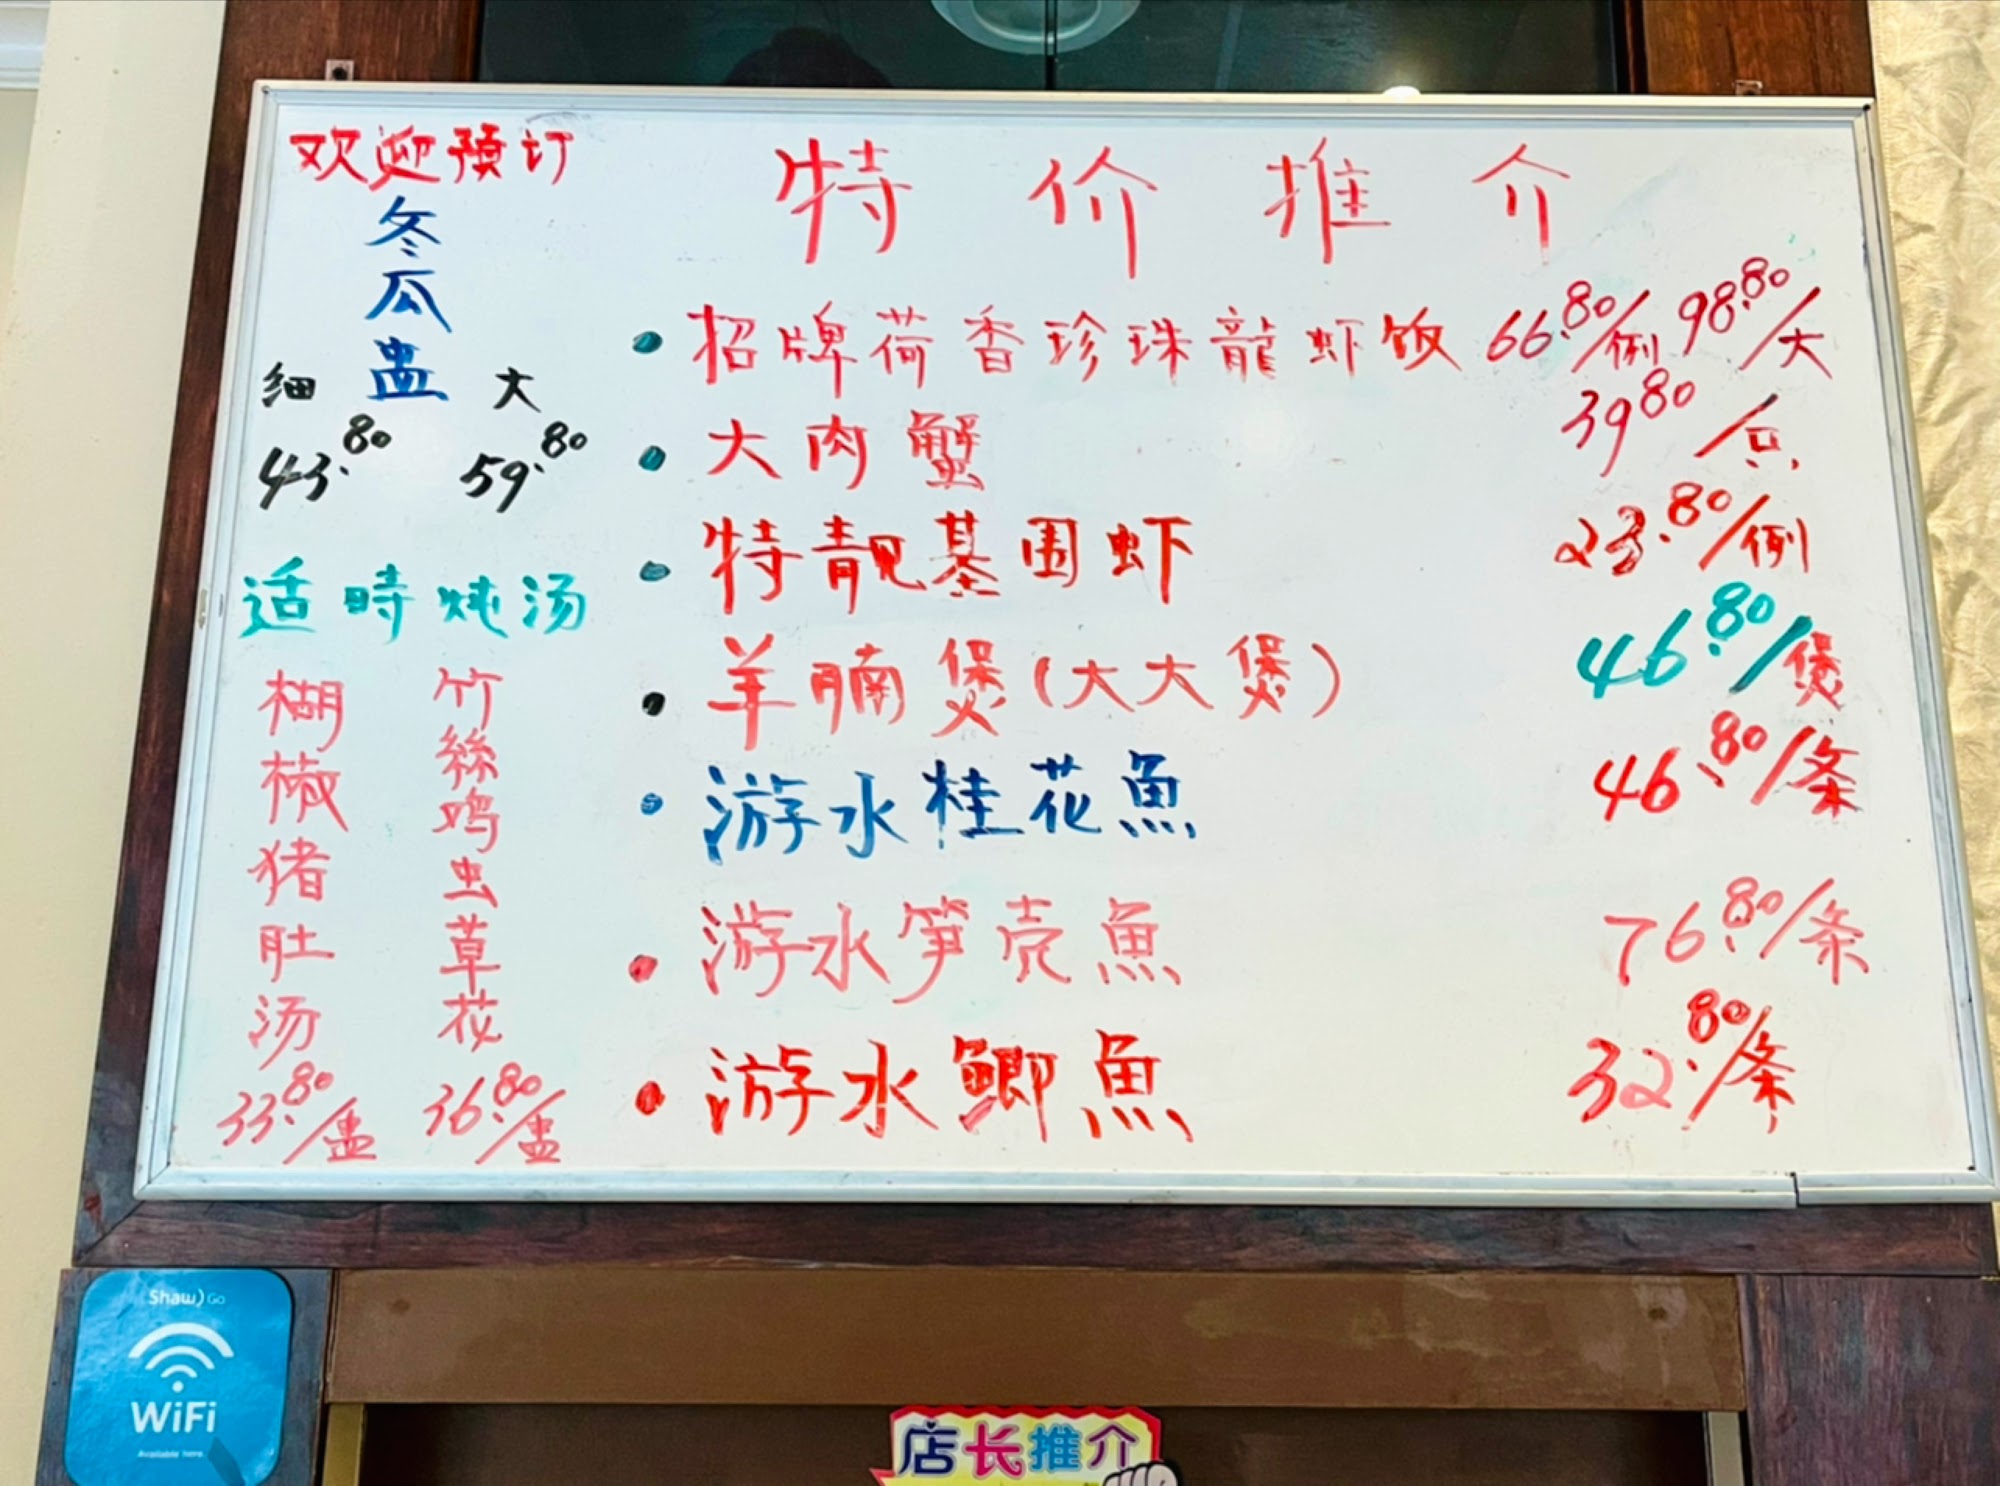 欢迎预订
冬瓜盅
细 大
43.80 59.80
适時炖汤
楜椒猪肚汤
33.80/盅
竹絲鸡虫草花
36.80/盅
特价推介
• 招牌荷香珍珠龍虾饭 66.80/例 98.80/大
• 大肉蟹 39.80/只
• 特靓基围虾 23.80/例
• 羊腩煲(大大煲) 46.80/煲
• 游水桂花魚 46.80/条
• 游水笋壳魚 76.80/条
• 游水鲫魚 32.80/条
Shaw) Go
WiFi
Available here
店长推介